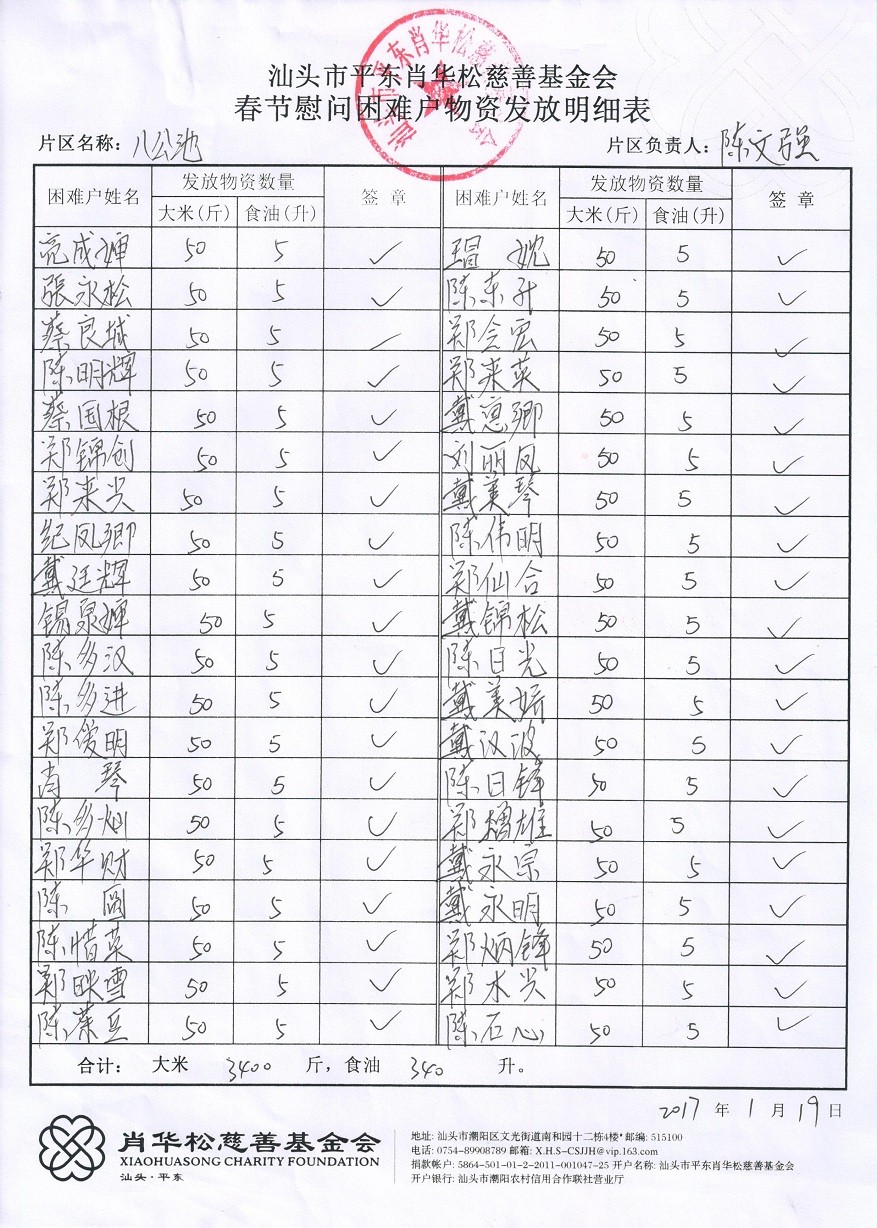 汕头市平东肖华松慈善基金会
春节慰问困难户物资发放明细表
片区名称：八公池 片区负责人：陈文强
困难户姓名 发放物资数量 签 章 困难户姓名 发放物资数量 签 章
大米(斤) 食油(升) 大米(斤) 食油(升)
亮成婶 50 5 ✓ 50 5 ✓
張永松 50 5 ✓ 陈东升 50 5 ✓
蔡良城 50 5 ✓ 郑会宏 50 5 ✓
陈明辉 50 5 ✓ 郑来英 50 5 ✓
蔡国根 50 5 ✓ 戴惠卿 50 5 ✓
郑锦创 50 5 ✓ 刘丽凤 50 5 ✓
郑来兴 50 5 ✓ 戴美琴 50 5 ✓
纪凤卿 50 5 ✓ 陈伟明 50 5 ✓
戴廷辉 50 5 ✓ 郑仙合 50 5 ✓
锡泉婶 50 5 ✓ 戴锦松 50 5 ✓
陈多汉 50 5 ✓ 陈日光 50 5 ✓
陈多进 50 5 ✓ 戴美娇 50 5 ✓
郑俊明 50 5 ✓ 戴汉波 50 5 ✓
肖 琴 50 5 ✓ 陈日锋 50 5 ✓
陈多灿 50 5 ✓ 50 5 ✓
郑华财 50 5 ✓ 戴永宗 50 5 ✓
陈 圆 50 5 ✓ 戴永明 50 5 ✓
陈惜菜 50 5 ✓ 郑炳锋 50 5 ✓
郑映雪 50 5 ✓ 郑木兴 50 5 ✓
陈 50 5 ✓ 陈石心 50 5 ✓
合计： 大米 3400 斤，食油 340 升。
2017 年 1 月 19 日
肖华松慈善基金会
XIAOHUASONG CHARITY FOUNDATION
汕头·平东
地址: 汕头市潮阳区文光街道南和园十二栋4楼 邮编: 515100
电话: 0754-89908789 邮箱: X.H.S-CSJJH@vip.163.com
捐款帐户: 5864-501-01-2-2011-001047-25 开户名称: 汕头市平东肖华松慈善基金会
开户银行: 汕头市潮阳农村信用合作联社营业厅